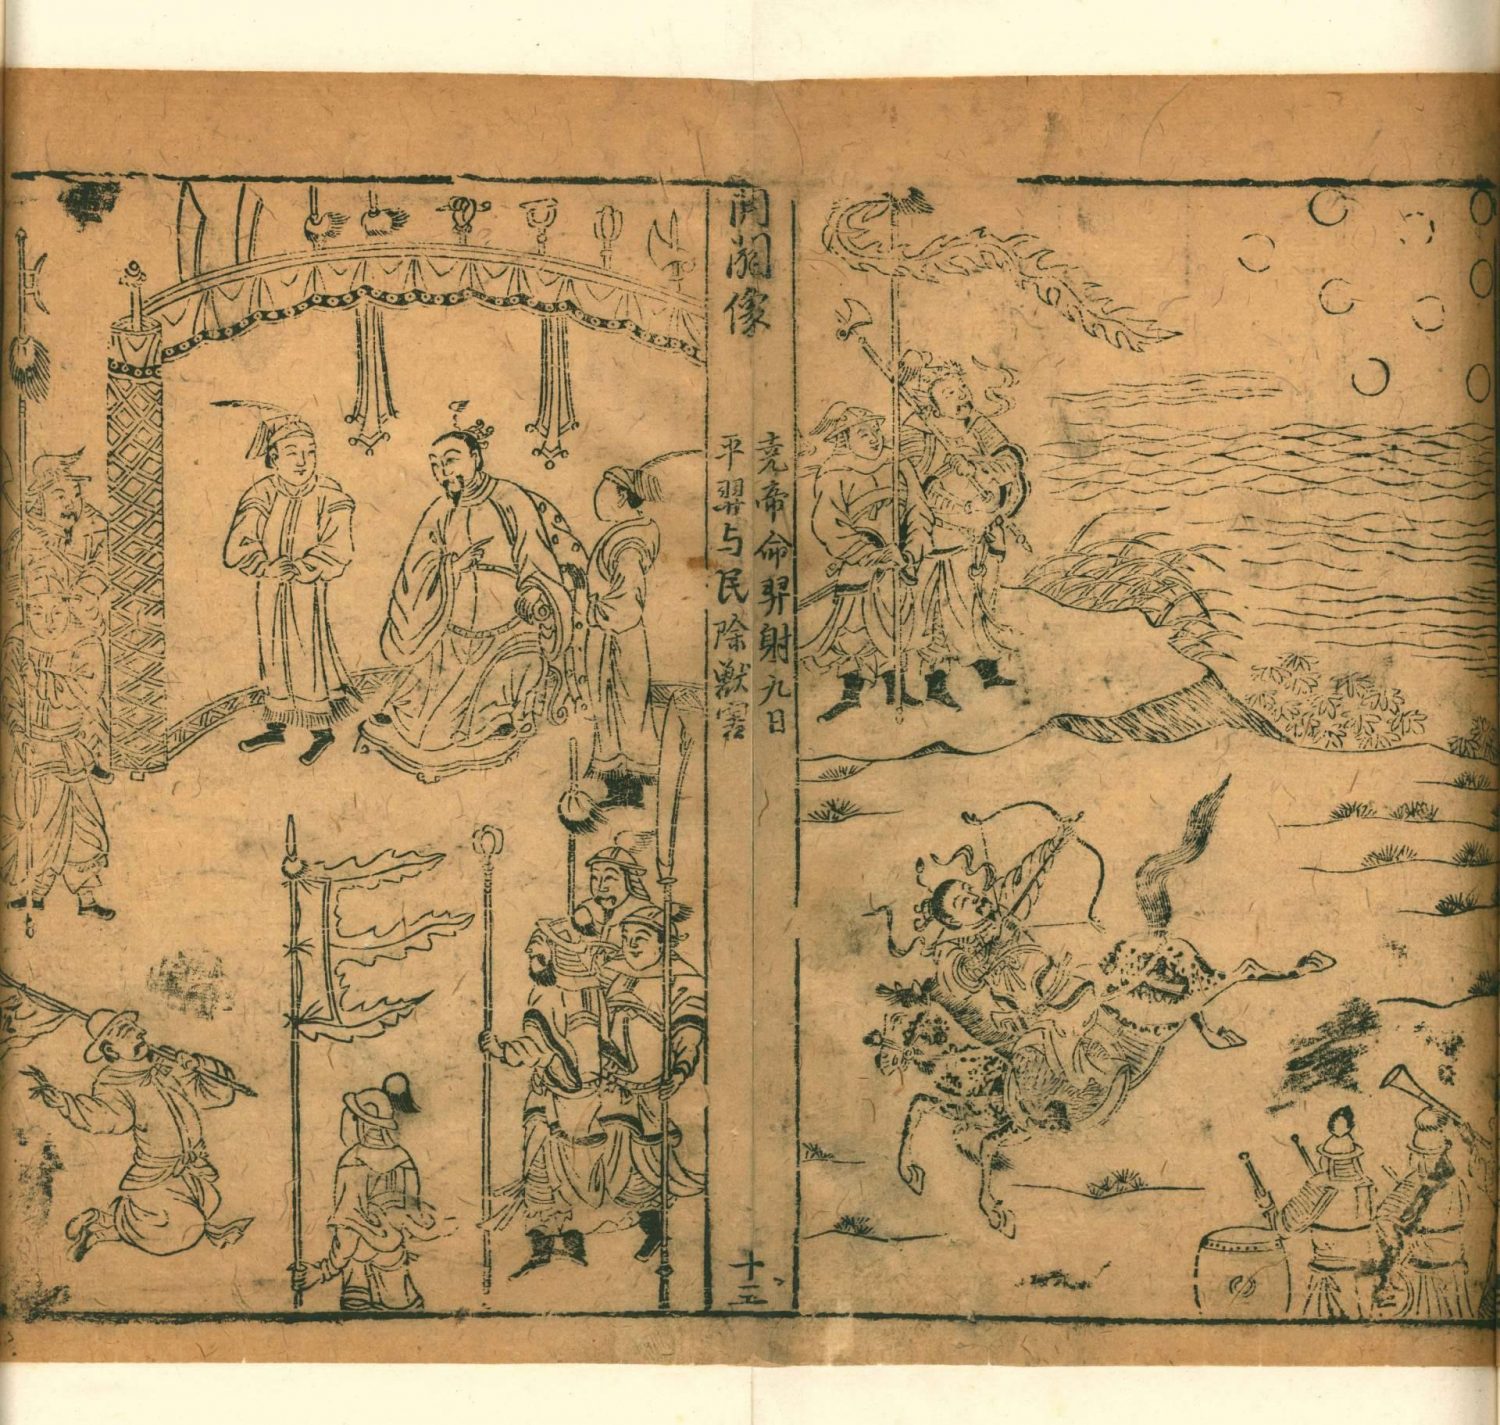 開闢像
堯帝命羿射九日
平羿与民除獸害
十